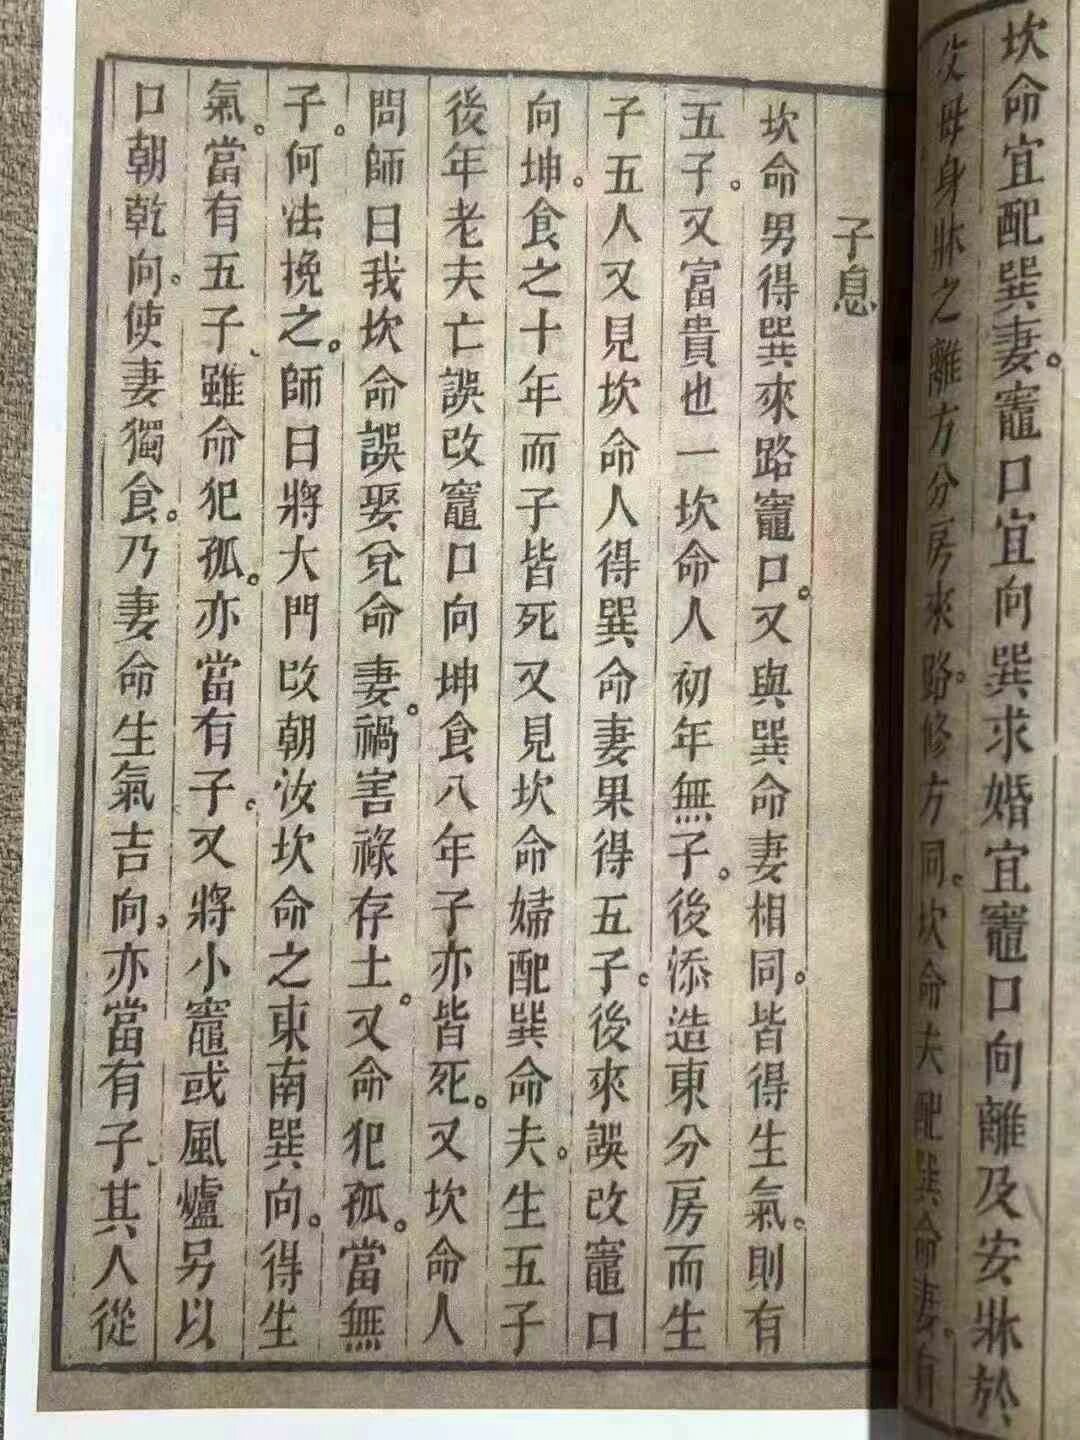 坎命宜配巽妻。竈口宜向巽求婚宜竈口向離及安牀於
父母身牀之離方分房來路。修方同。坎命夫配巽命妻。有
子息
坎命男得巽來路竈口。又與巽命妻相同。皆得生氣。則有
五子。又富貴也一坎命人初年無子。後添造東分房而生
子五人又見坎命人得巽命妻果得五子。後來誤改竈口
向坤。食之十年而子皆死又見坎命婦配巽命夫。生五子
後年老夫亡誤改竈口向坤食八年子亦皆死。又坎命人
問師曰我坎命誤娶兌命妻。禍害祿存土。又命犯孤。當無
子。何法挽之。師曰將大門改朝汝坎命之東南巽向。得生
氣。當有五子、雖命犯孤。亦當有子。又將小竈或風爐另以
口朝乾向。使妻獨食。乃妻命生氣吉向。亦當有子、其人從